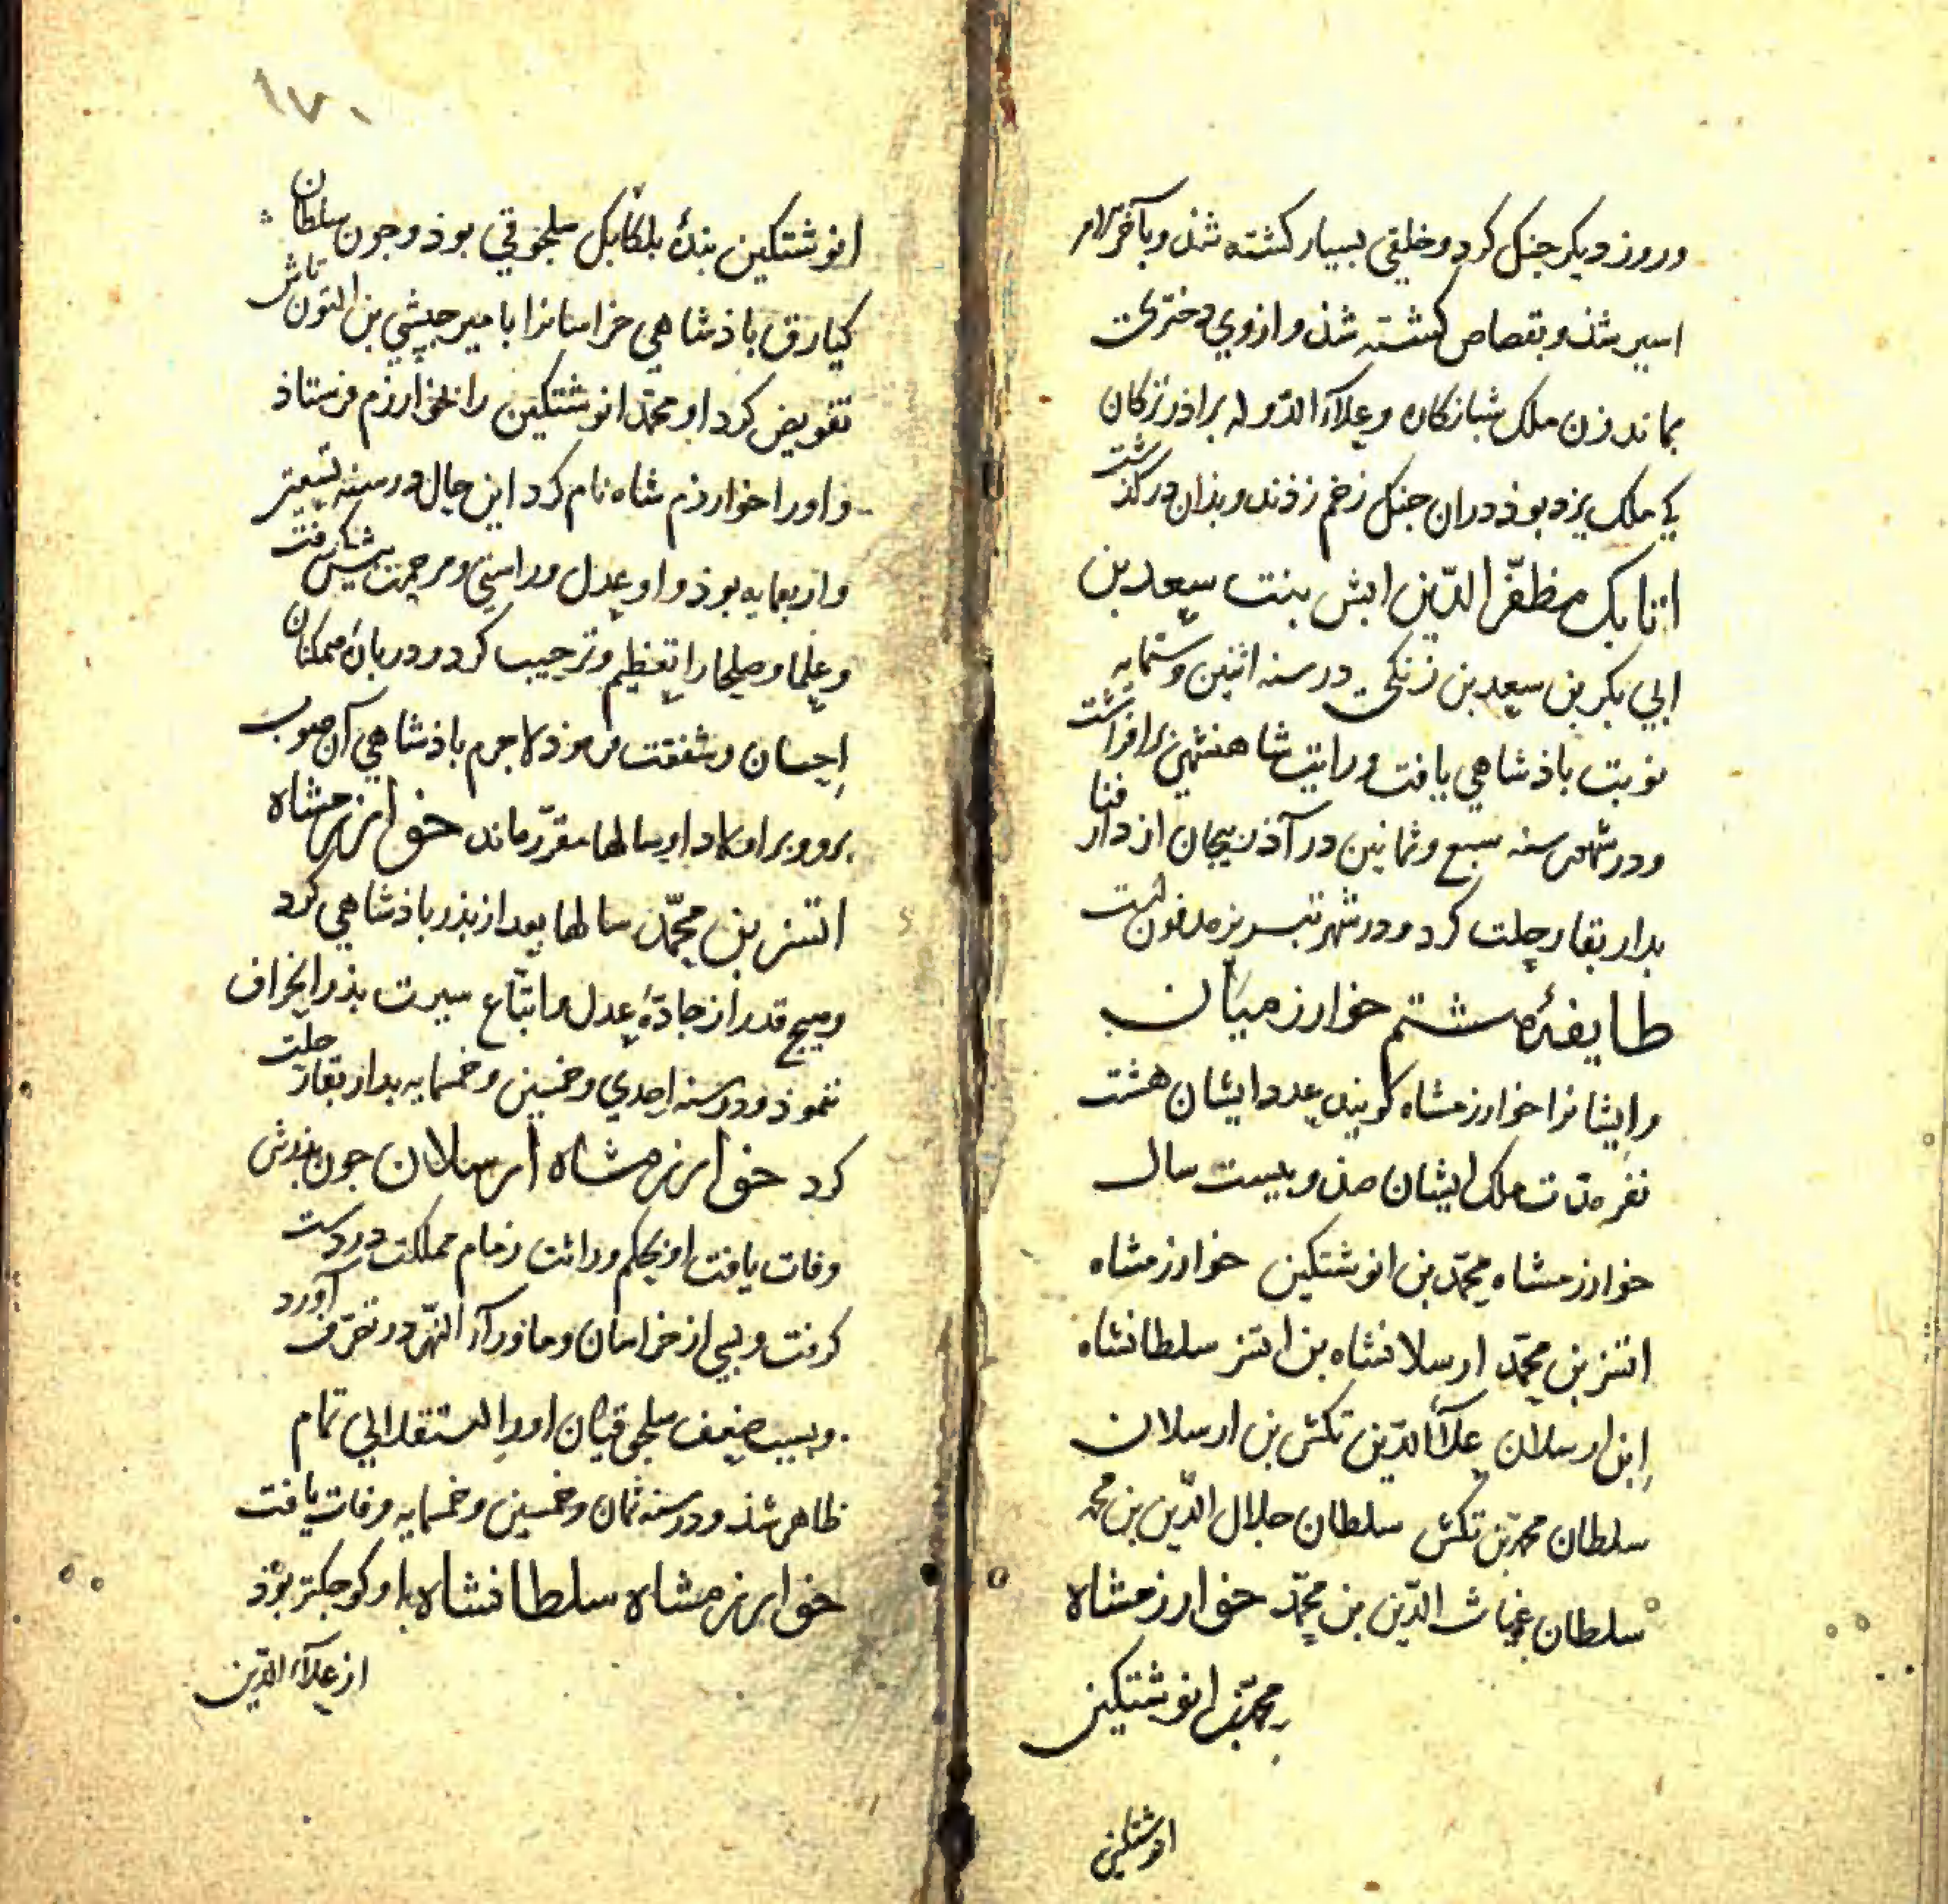 و روز دیکر جنک کرد و خلقی بسیار کشته شذ و بآخر الامر
اسیر شذ و بقصاص کشته شذ و ازوی دختری
بماند زن ملک شبانکاره و علاء الدوله براذر ترکان
کی ملک یزد بوذ دران جنک زخم زذند و بذان درکذشت
اتابک مظفّر الدّین ابش بنت سعد بن
ابی بکر بن سعد بن زنکی در سنه اثنین وستمایه
نوبت باذشاهی یافت و رایت شاهنشهی برافراشت
ودر شهور سنه سبع وثمانین در آذربیجان از دار فنا
بدار بقا رحلت کرد و در شهر تبریز مدفونست
طایفهٔ هشتم خوارزمیان
وایشانرا خوارزمشاه کویند عدد ایشان هشت
نفر مدّت ملک ایشان صذ و بیست سال
خوارزمشاه محمّد بن انوشتکین خوارزمشاه
اتسز بن محمّد ارسلانشاه بن اتسز سلطانشاه
ابن ارسلان علاء الدّین تکش بن ارسلان
سلطان محمد بن تکش سلطان جلال الدّین بن محمد
سلطان غیاث الدّین بن محمّد خوارزمشاه
محمّد بن انوشتکین
انوشتکین
۱۷۰
انوشتکین بندهٔ بلکابک سلجوقی بوذ و جون سلطان
کیارق باذشاهی خراسانرا بامیر حبشی بن التون تاش
تفویض کرد او محمّد انوشتکین را بخوارزم فرستاذ
و اورا خوارزم شاه نام کرد این حال در سنه تسعین
واربعمایه بوذ و او عدل و راستی و مرحمت بیش کرفت
و علما و صلحا را تعظیم و ترحیب کرد و در بارهٔ همکنان
احسان و شفقت فرموذ لاجرم باذشاهی آن صوب
برو و بر اولاد او سالها مقرّر ماند خوارزمشاه
اتسز بن محمّد سالها بعد از بذر باذشاهی کرد
وهیج قدر از جادّهٔ عدل و اتّباع سیرت بذر انحراف
ننموذ و در سنه احدی وخمسین وخمسمایه بدار بقا رحلت
کرد خوارزمشاه ارسلان جون بذرش
وفات یافت او بحکم وراثت زمام مملکت در دست
کرفت و بسی از خراسان و ماورآء النهر در تصرّف آورد
و بسبب ضعف سلجوقیان اورا استقلالی تمام
ظاهر شذ و در سنه ثمان وخمسین وخمسمایه وفات یافت
خوارزمشاه سلطانشاه او کوجکتر بوذ
از علآء الدّین